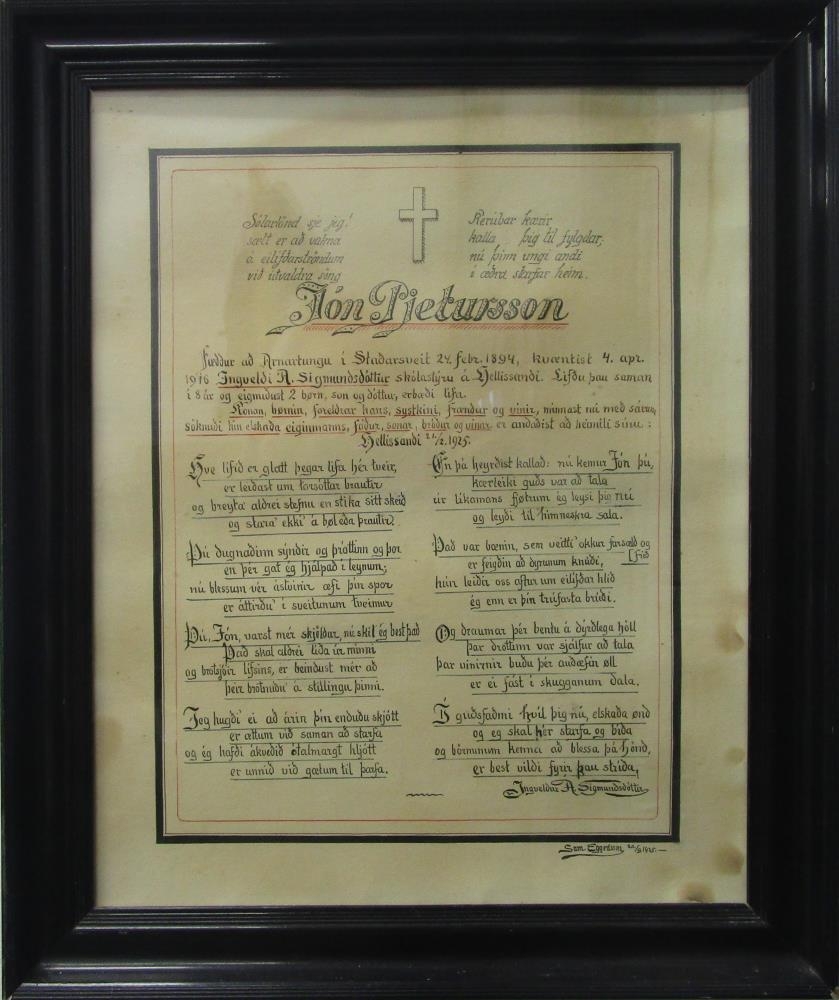 Sólarlönd sje jeg!
sælt er að vakna
á eilífðarströndum
við útvaldra söng
Kerúbar kærir
kalla þig til fylgdar;
nú þinn ungi andi
í æðra starfar heim.
Jón Pjetursson
Fæddur að Arnartungu í Staðarsveit 24. febr. 1894, kvæntist 4. apr.
1916 Ingveldi Á. Sigmundsdóttur skólastýru á Hellissandi. Lifðu þau saman
í 8 ár og eignuðust 2 börn, son og dóttur, er bæði lifa.
Konan, börnin, foreldrar hans, systkini, frændur og vinir, minnast nú með sárum
söknuði hin elskaða eiginmanns, föður, sonar, bróður og vinar er andaðist að heimili sínu:
Hellissandi /2. 1925.
Hve lífið er glatt þegar lifa hér tveir,
er leiðast um torsóttar brautir
og breyta' aldrei stefnu en stika sitt skeið
og stara' ekki' á böl eða þrautir.
Þú dugnaðinn sýndir og þróttinn og þor
en þér gat ég hjálpað í leynum;
nú blessum vér ástvinir æfi þín spor
er áttirðu' í sveitunum tveimur
Þú, Jón, varst mér skjöldur, nú skil ég best það
Það skal aldrei líða úr minni
og brotsjóir lífsins, er beindust mér að
þeir brotnuðu' á stillingu þinni.
Jeg hugði' ei að árin þín enduðu skjótt
er ættum við saman að starfa
og ég hafði ákveðið ótalmargt hljótt
er unnið við gætum til þarfa.
En þá heyrðist kallað: nú kemur Jón þú,
kærleiki guðs var að tala
úr líkamans fjötrum ég leysi þig nú
og leyði til himneskra sala.
Það var bænin, sem veitti' okkur farsæld og
[frið
er feigðin að dyrunum knúði,
hún leiðir oss aftur um eilífðar hlið
ég enn er þín trúfasta brúði.
Og draumar þér bentu á dýrðlega höll
þar drottinn var sjálfur að tala
þar vinirnir buðu þér auðæfin öll
er ei fást í skugganum dala.
Í guðsfaðmi hvíl þig nú, elskaða önd
og eg skal hér starfa og bíða
og börnunum kenna að blessa þá hönd,
er best vildi fyrir þau stríða,
Ingveldur Á. Sigmundsdóttir
Sam. Eggertsson 1925.—